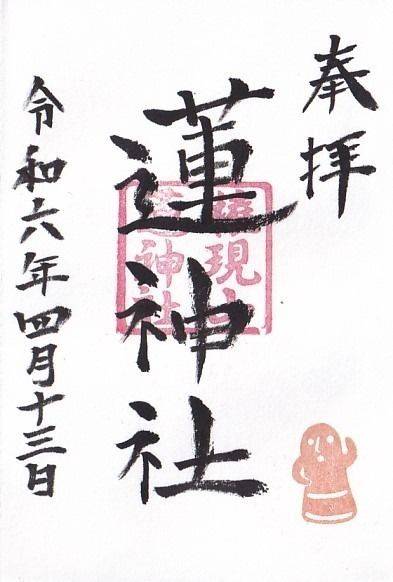 奉拝
蓮神社
権現山
神社
令和六年四月十三日